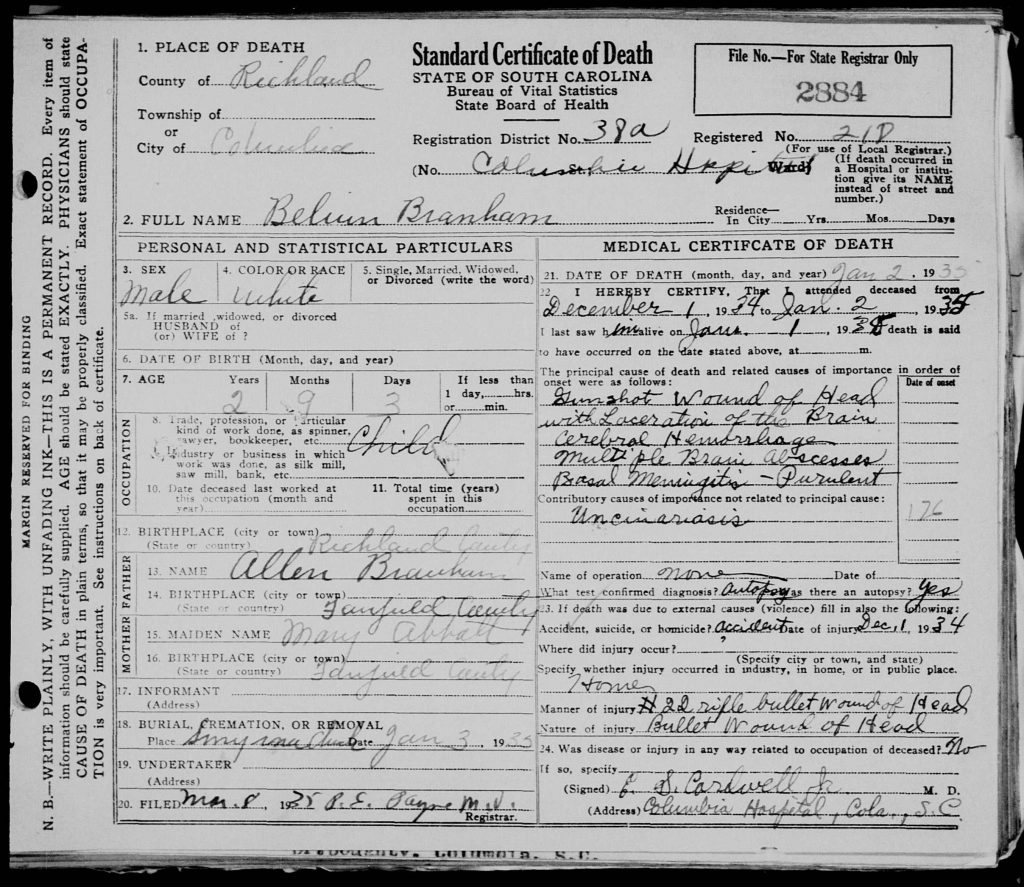 MARGIN RESERVED FOR BINDING
N. B.—WRITE PLAINLY, WITH UNFADING INK—THIS IS A PERMANENT RECORD. Every item of
information should be carefully supplied. AGE should be stated EXACTLY. PHYSICIANS should state
CAUSE OF DEATH in plain terms, so that it may be properly classified. Exact statement of OCCUPA-
TION is very important. See instructions on back of certificate.
1. PLACE OF DEATH
County of Richland
Township of
or
City of Columbia
Standard Certificate of Death
STATE OF SOUTH CAROLINA
Bureau of Vital Statistics
State Board of Health
File No.—For State Registrar Only
2884
Registration District No. 38a Registered No. 218
(For use of Local Registrar.)
(No. Columbia Hspital Ward)
(If death occurred in
a Hospital or institu-
tion give its NAME
instead of street and
number.)
2. FULL NAME Belvin Branham
Residence—
In City Yrs. Mos. Days
PERSONAL AND STATISTICAL PARTICULARS
3. SEX
Male
4. COLOR OR RACE
White
5. Single, Married, Widowed,
or Divorced (write the word)
5a. If married, widowed, or divorced
HUSBAND of
(or) WIFE of ?
6. DATE OF BIRTH (Month, day, and year)
7. AGE Years Months Days If less than
1 day, hrs.
or min.
2 9 3
OCCUPATION
8. Trade, profession, or particular
kind of work done, as spinner,
sawyer, bookkeeper, etc. Child
9. Industry or business in which
work was done, as silk mill,
saw mill, bank, etc.
10. Date deceased last worked at
this occupation (month and
year)
11. Total time (years)
spent in this
occupation
12. BIRTHPLACE (city or town)
(State or country) Richland County
FATHER
13. NAME Allen Branham
14. BIRTHPLACE (city or town)
(State or country) Fairfield County
MOTHER
15. MAIDEN NAME Mary Abbott
16. BIRTHPLACE (city or town)
(State or country) Fairfield County
17. INFORMANT
(Address)
18. BURIAL, CREMATION, OR REMOVAL
Place Smyrna Church Date Jan 3, 1935
19. UNDERTAKER
(Address)
20. FILED Mar. 8, 1935 P. E. Payne M.D.
Registrar.
MEDICAL CERTIFCATE OF DEATH
21. DATE OF DEATH (month, day, and year) Jan 2, 1935
22. I HEREBY CERTIFY, That I attended deceased from
December 1, 1934 to Jan. 2, 1935
I last saw him alive on Jan. 1, 1935 death is said
to have occurred on the date stated above, at m.
The principal cause of death and related causes of importance in order of
onset were as follows: Date of onset
Gunshot Wound of Head
with Laceration of the Brain
Cerebral Hemorrhage
Multiple Brain Abscesses
Basal Meningitis — Purulent
Contributory causes of importance not related to principal cause:
Uncinariasis
176
Name of operation none Date of
What test confirmed diagnosis? Autopsy Was there an autopsy? Yes
23. If death was due to external causes (violence) fill in also the following:
Accident, suicide, or homicide? accident Date of injury Dec. 1, 1934
Where did injury occur?
(Specify city or town, and state)
Specify whether injury occurred in industry, in home, or in public place.
Home
Manner of injury # 22 rifle bullet wound of Head
Nature of injury Bullet Wound of Head
24. Was disease or injury in any way related to occupation of deceased? No
If so, specify
(Signed) E. S. Cardwell Jr. M. D.
(Address) Columbia Hospital, Cola., S.C.